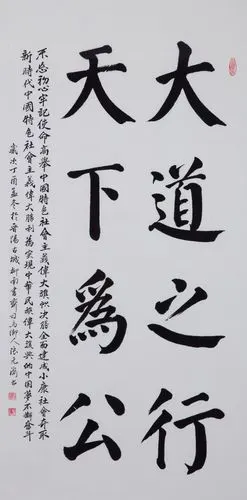 大道之行
天下為公
不忘初心牢記使命高舉中國特色社會主義偉大旗幟決勝全面建成小康社會奪取
新時代中國特色社會主義偉大勝利為實現中華民族偉大復興的中國夢不懈奮斗
歲次丁酉孟冬於晋陽古城柳南書齋